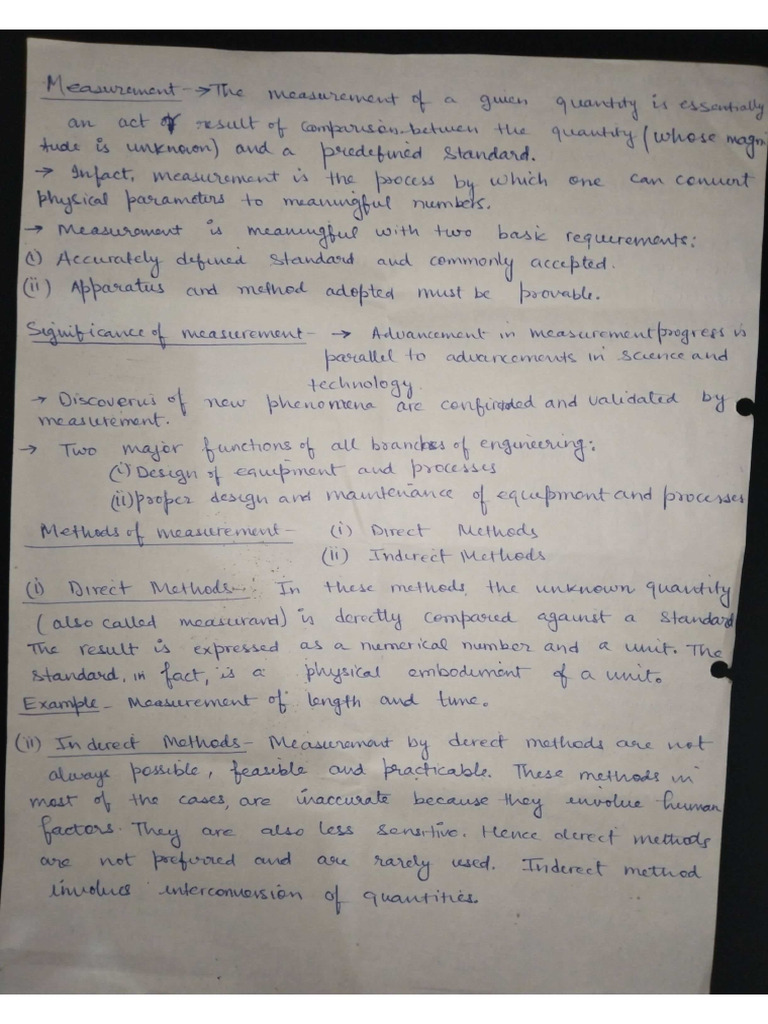 Measurement → The measurement of a given quantity is essentially
an act or result of comparison between the quantity (whose magni
tude is unknown) and a predefined standard.
→ Infact, measurement is the process by which one can convert
physical parameters to meaningful numbers.
→ Measurement is meaningful with two basic requirements:
(i) Accurately defined standard and commonly accepted.
(ii) Apparatus and method adopted must be provable.
Significance of measurement - → Advancement in measurement progress is
parallel to advancements in science and
technology.
→ Discoveries of new phenomena are and validated by
measurement.
→ Two major functions of all branches of engineering:
(i) Design of equipment and processes
(ii) proper design and maintenance of equipment and processes
Methods of measurement - (i) Direct Methods
(ii) Indirect Methods
(i) Direct Methods - : In these methods, the unknown quantity
(also called measurand) is directly compared against a standard
The result is expressed as a numerical number and a unit. The
standard, in fact, is a physical embodiment of a unit.
Example - Measurement of length and time.
(ii) Indirect Methods - Measurement by direct methods are not
always possible, feasible and practicable. These methods in
most of the cases, are inaccurate because they involve human
factors. They are also less sensitive. Hence direct methods
are not preferred and are rarely used. Indirect method
involves interconversion of quantities.